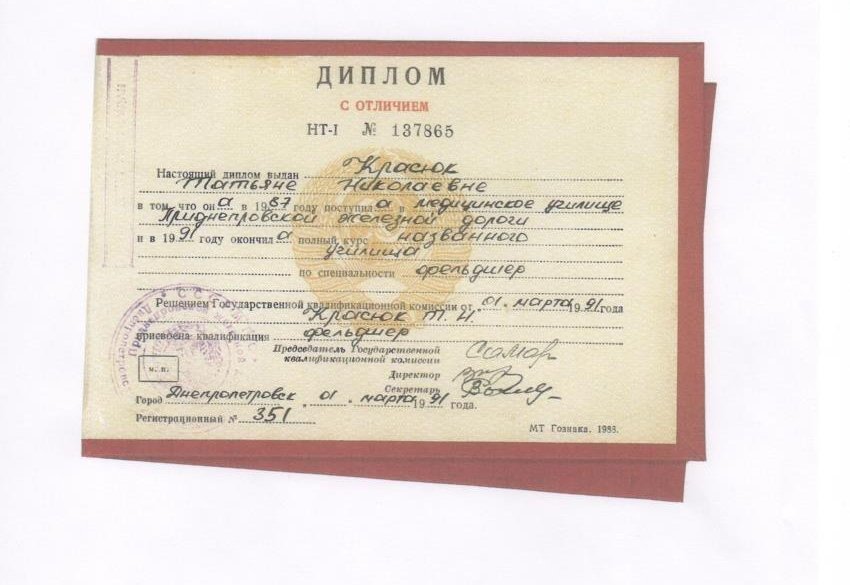 ДИПЛОМ
С ОТЛИЧИЕМ
НТ-I № 137865
Настоящий диплом выдан Красюк
Татьяне Николаевне
в том, что он а в 1987 году поступил а в медицинское училище
Приднепровской железной дороги
и в 1991 году окончил а полный курс названного
училища
по специальности фельдшер
Решением Государственной квалификационной комиссии от 01 марта 1991 года
Красюк Т. Н.
присвоена квалификация фельдшер
Председатель Государственной
квалификационной комиссии
Директор
Секретарь
м. п.
Город Днепропетровск 01 марта 1991 года.
Регистрационный № 351
МТ Гознака. 1988.